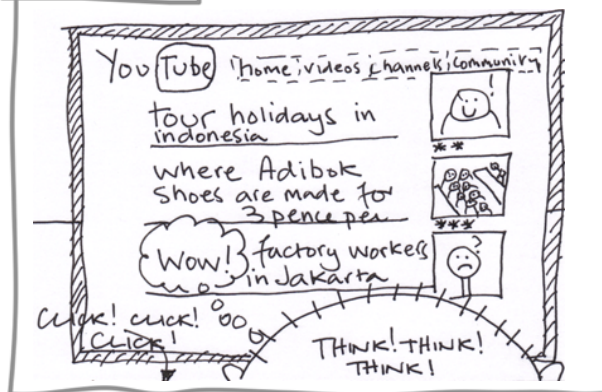 YouTube home videos channels community
tour holidays in
indonesia
!
**
where Adibok
shoes are made for
3 pence per
***
Wow! factory workers
in Jakarta
?
CLICK! CLICK!
CLICK!
THINK! THINK!
THINK!